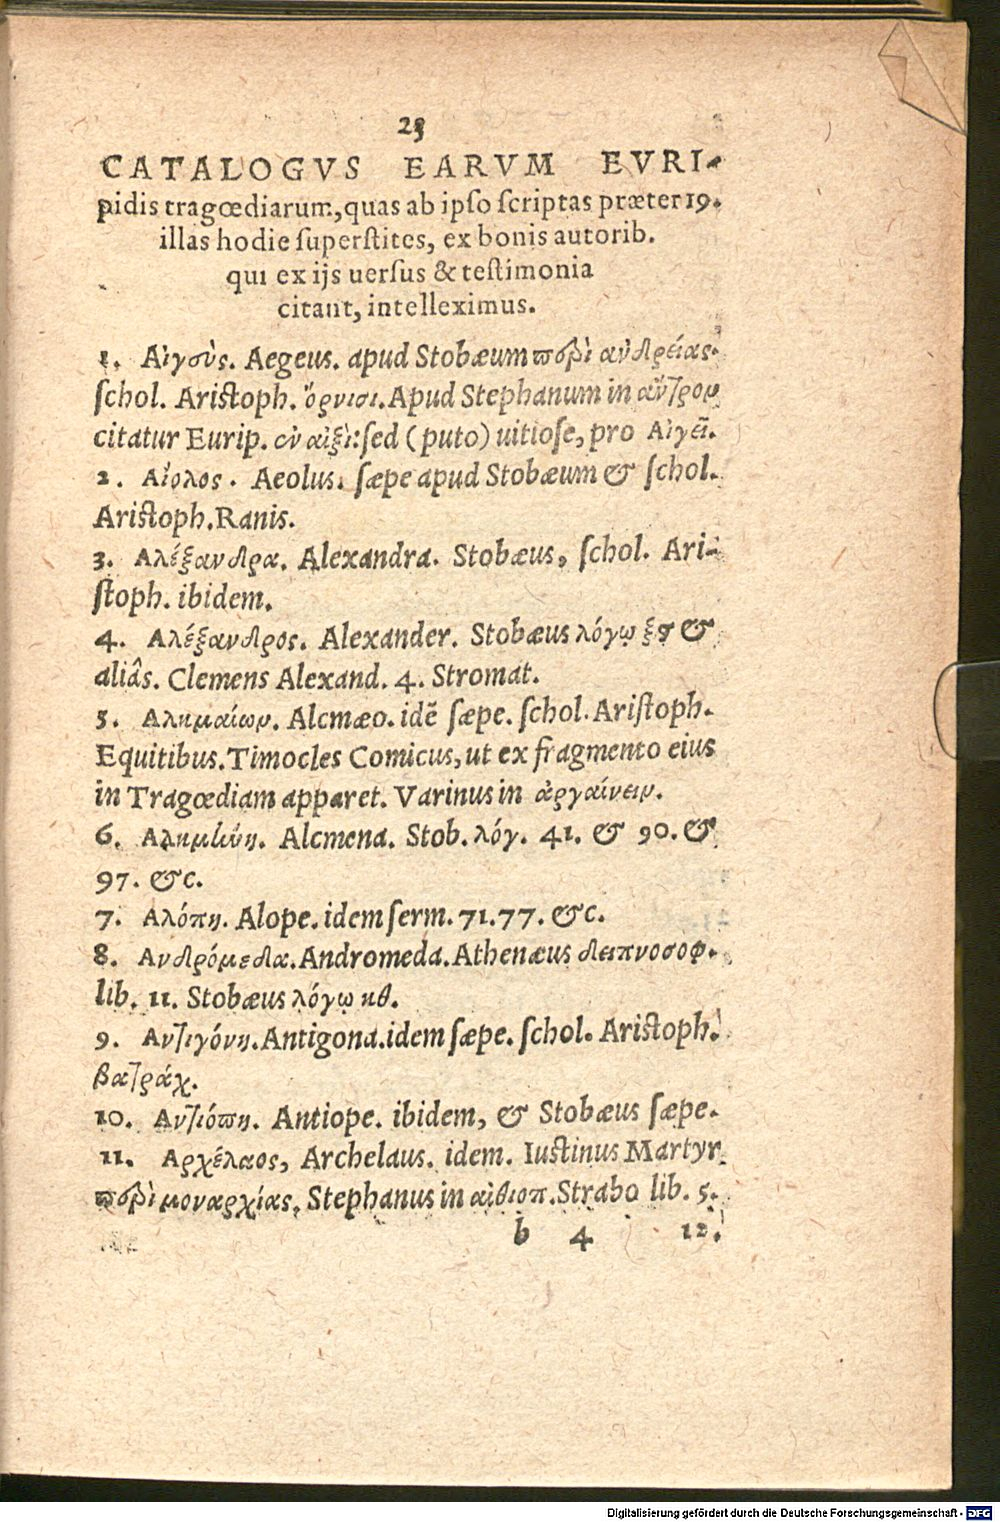 23
CATALOGVS EARVM EVRI-
pidis tragœdiarum, quas ab ipſo ſcriptas præter 19.
illas hodie ſuperſtites, ex bonis autorib.
qui ex ijs uerſus & teſtimonia
citant, intelleximus.
1. Αἰγεὺς. Aegeus. apud Stobæum περὶ ἀνδρείας.
ſchol. Ariſtoph. ὄρνισι. Apud Stephanum in ἄντρον
citatur Eurip. ἐν αἰξὶ: ſed (puto) uitioſe, pro Αἰγεῖ.
2. Αἴολος. Aeolus. ſæpe apud Stobæum & ſchol.
Ariſtoph. Ranis.
3. Αλέξανδρα. Alexandra. Stobæus, ſchol. Ari-
ſtoph. ibidem.
4. Αλέξανδρος. Alexander. Stobæus λόγῳ ξϛ &
aliâs. Clemens Alexand. 4. Stromat.
5. Αλκμαίων. Alcmæo. idẽ ſæpe. ſchol. Ariſtoph.
Equitibus. Timocles Comicus, ut ex fragmento eius
in Tragœdiam apparet. Varinus in ἀργαίνειν.
6. Αλκμήνη. Alcmena. Stob. λόγ. 41. & 90. &
97. &c.
7. Αλόπη. Alope. idem ſerm. 71. 77. &c.
8. Ανδρόμεδα. Andromeda. Athenæus δειπνοσοφ.
lib. 11. Stobæus λόγῳ κθ.
9. Αντιγόνη. Antigona. idem ſæpe. ſchol. Ariſtoph.
βατράχ.
10. Αντιόπη. Antiope. ibidem, & Stobæus ſæpe.
11. Αρχέλαος, Archelaus. idem. Iuſtinus Martyr
περὶ μοναρχίας. Stephanus in αἰθιοπ. Strabo lib. 5.
b 4 12.
Digitalisierung gefördert durch die Deutsche Forschungsgemeinschaft - DFG